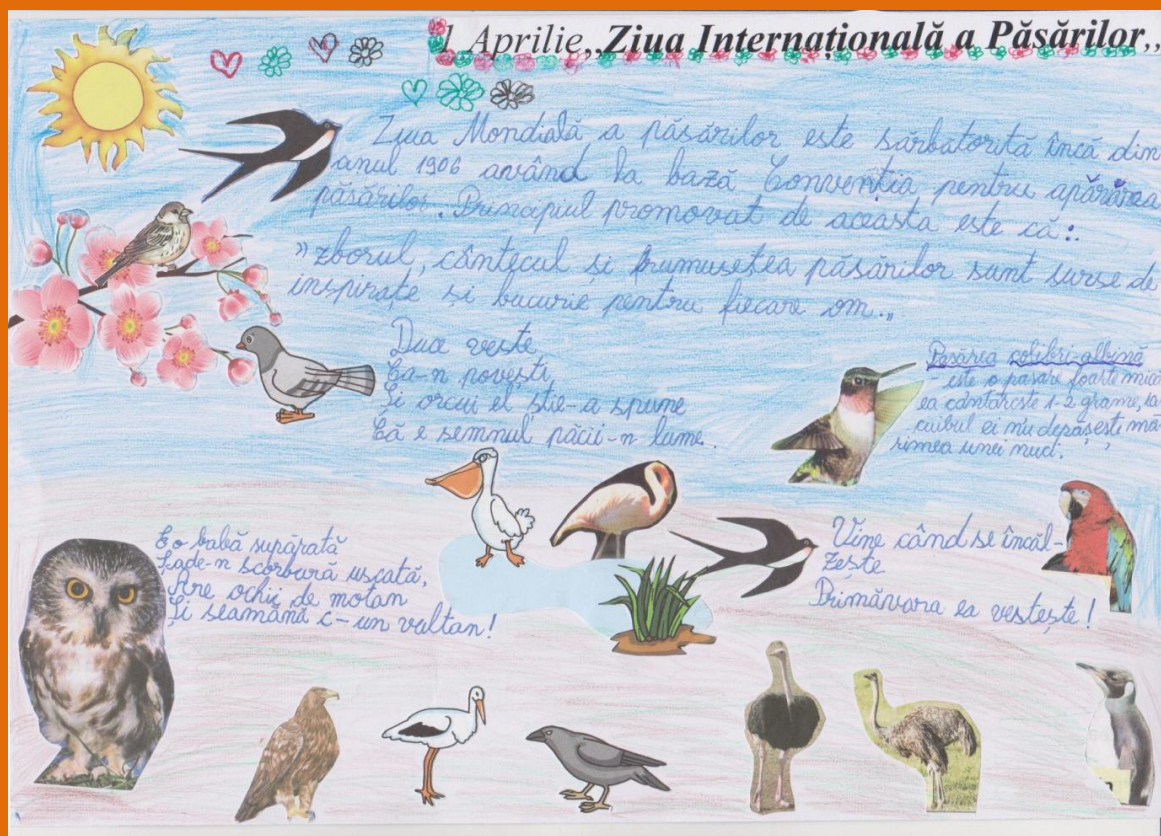 1 Aprilie,,Ziua Internațională a Păsărilor,,
Ziua Mondială a păsărilor este sărbătorită încă din
anul 1906 având la bază Convenția pentru apărarea
păsărilor. Principiul promovat de aceasta este că:
"zborul, cântecul și frumusețea păsărilor sunt surse de
inspirație și bucurie pentru fiecare om.„
Duce veste
Ca-n povești
Și orcui el știe-a spune
Că e semnul păcii-n lume.
Pasărea colibri albină
- este o pasăre foarte mică
ea cântărește 1-2 grame, ia
cuibul ei nu depășești mă-
rimea unei nuci.
E o babă supărată
Șade-n scorbură uscată,
Are ochii de motan
Și seamănă c-un vultan!
Vine când se încăl-
zește
Primăvara ea vestește!